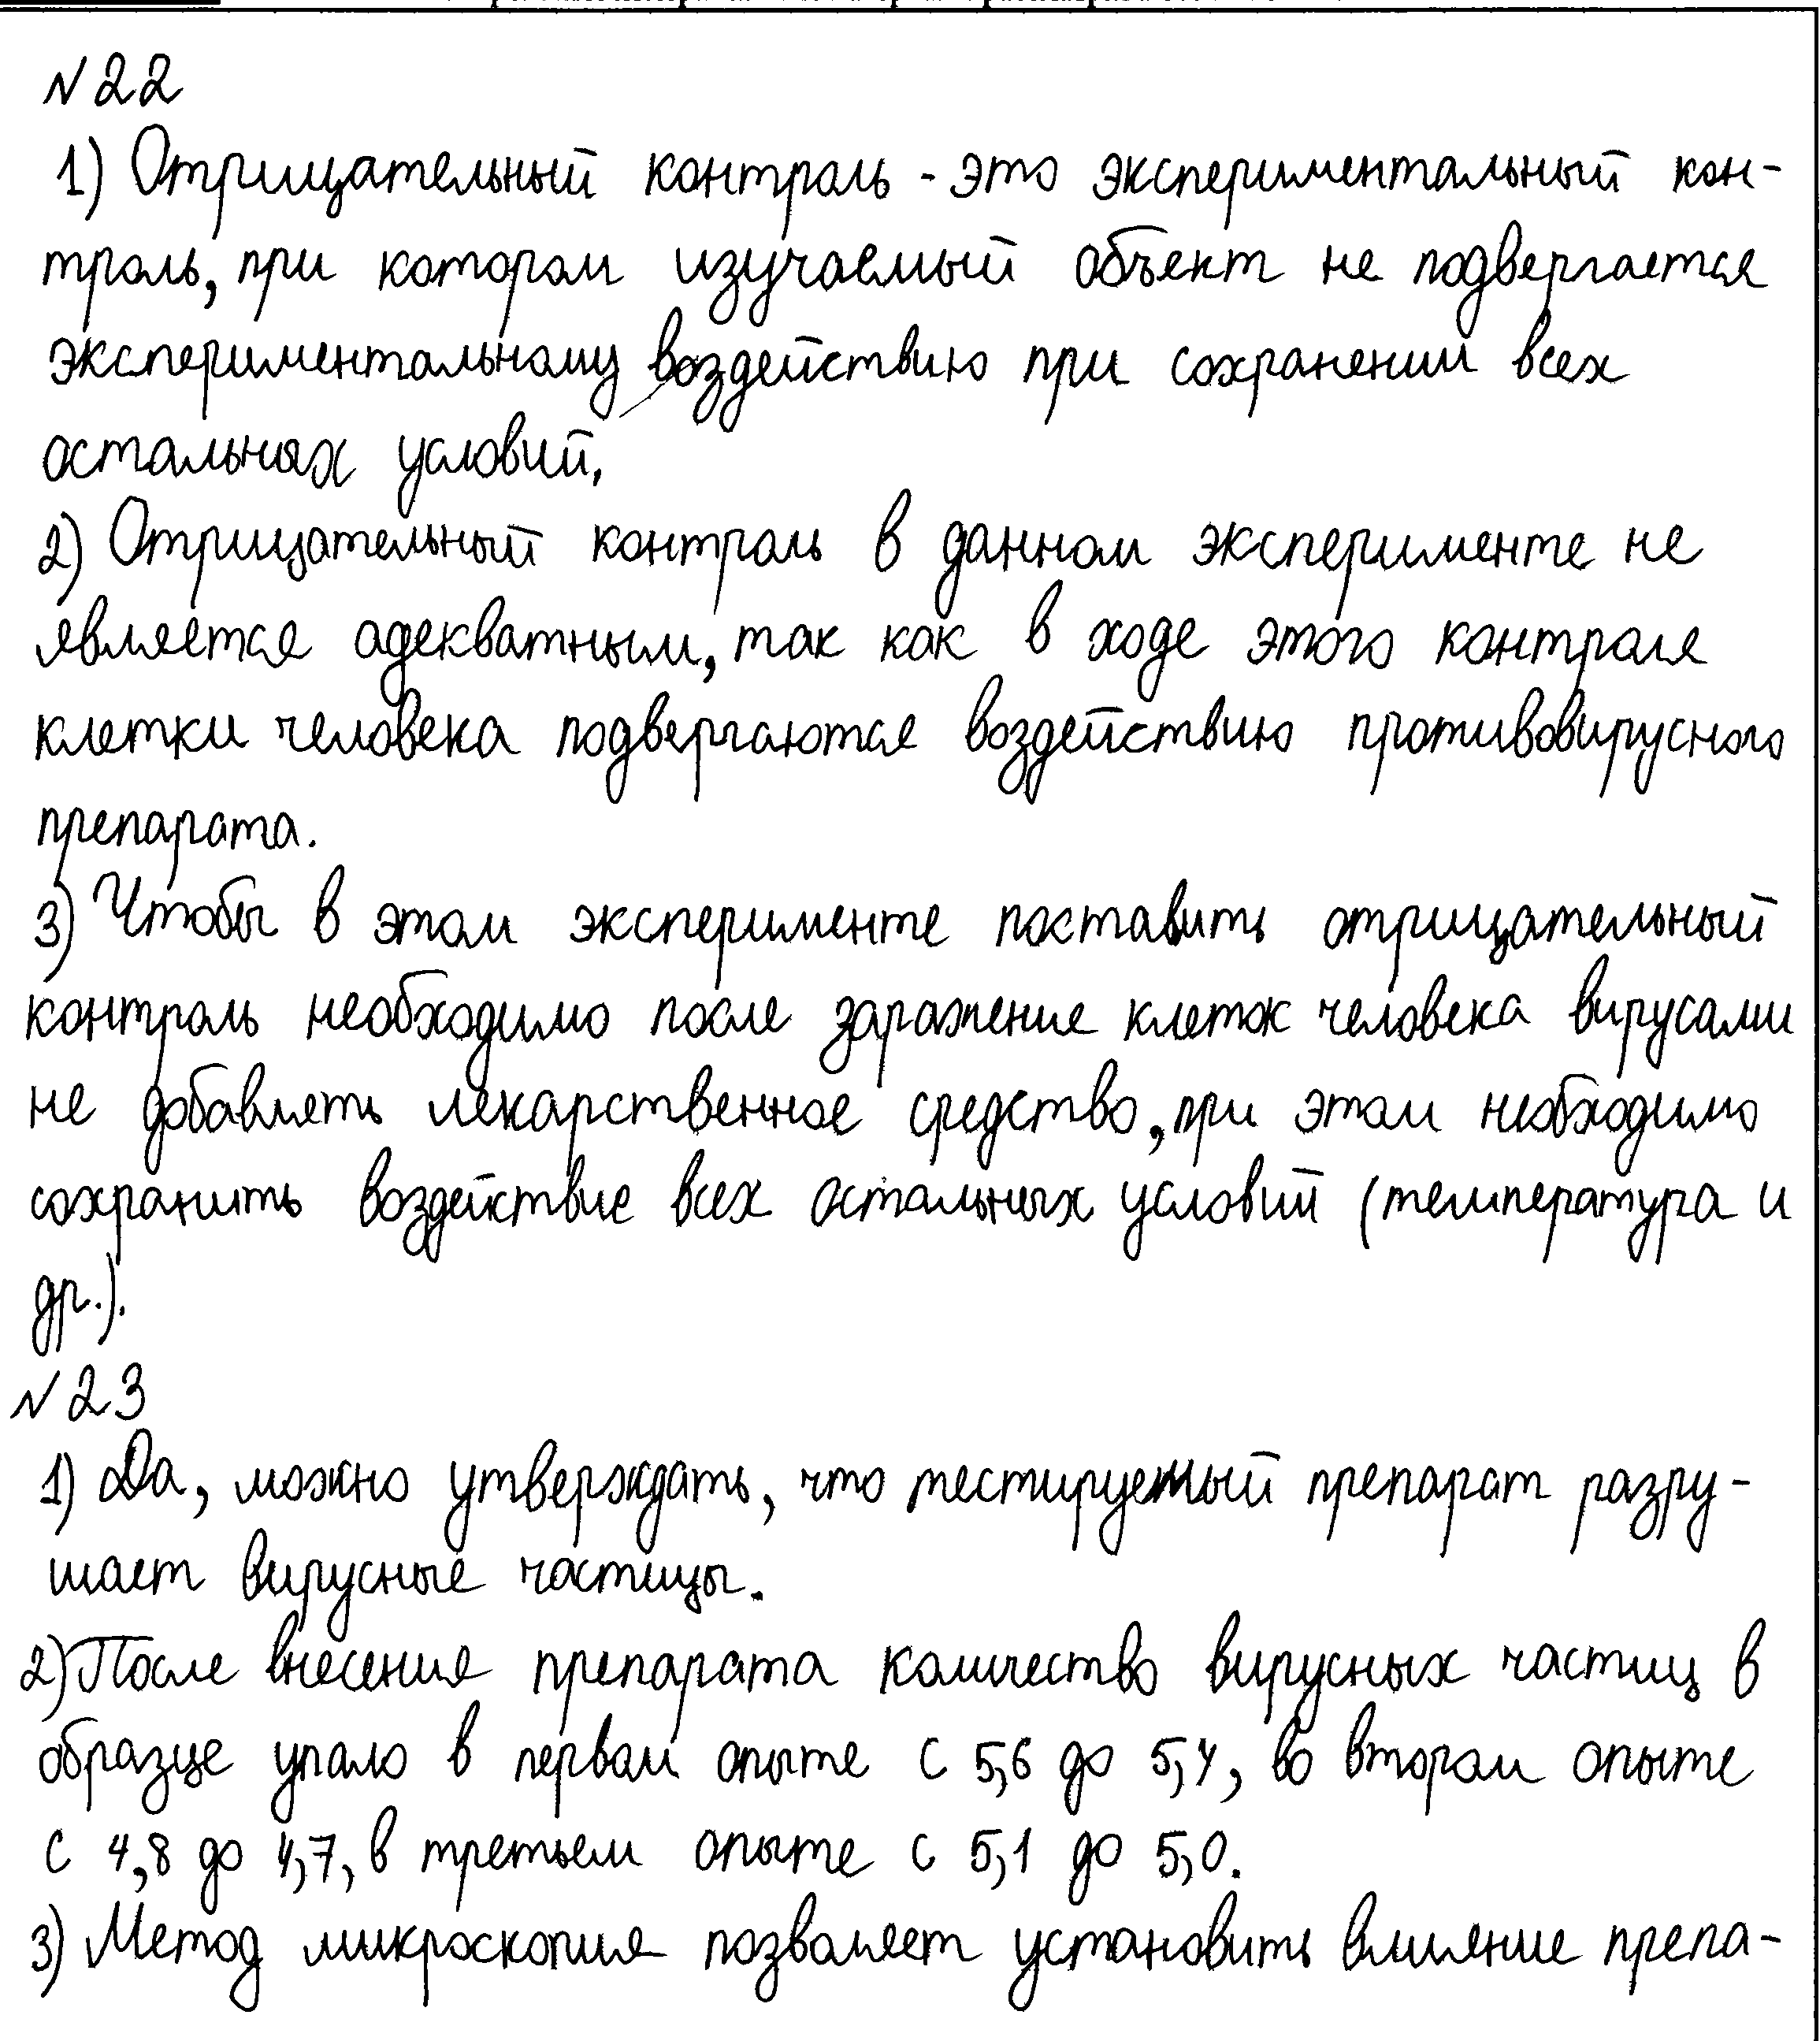 №22
1) Отрицательный контроль - это экспериментальный кон-
троль, при котором изучаемый объект не подвергается
экспериментальному воздействию при сохранении всех
остальных условий.
2) Отрицательный контроль в данном эксперименте не
является адекватным, так как в ходе этого контроля
клетки человека подвергаются воздействию противовирусного
препарата.
3) Чтобы в этом эксперименте поставить отрицательный
контроль необходимо после заражение клеток человека вирусами
не добавлять лекарственное средство, при этом необходимо
сохранить воздействие всех остальных условий (температура и
др.).
№23
1) Да, можно утверждать, что тестируемый препарат разру-
шает вирусные частицы.
2) После внесения препарата количество вирусных частиц в
образце упало в первом опыте с 5,6 до 5,4, во втором опыте
с 4,8 до 4,7, в третьем опыте с 5,1 до 5,0.
3) Метод микроскопия позволяет установить влияние препа-